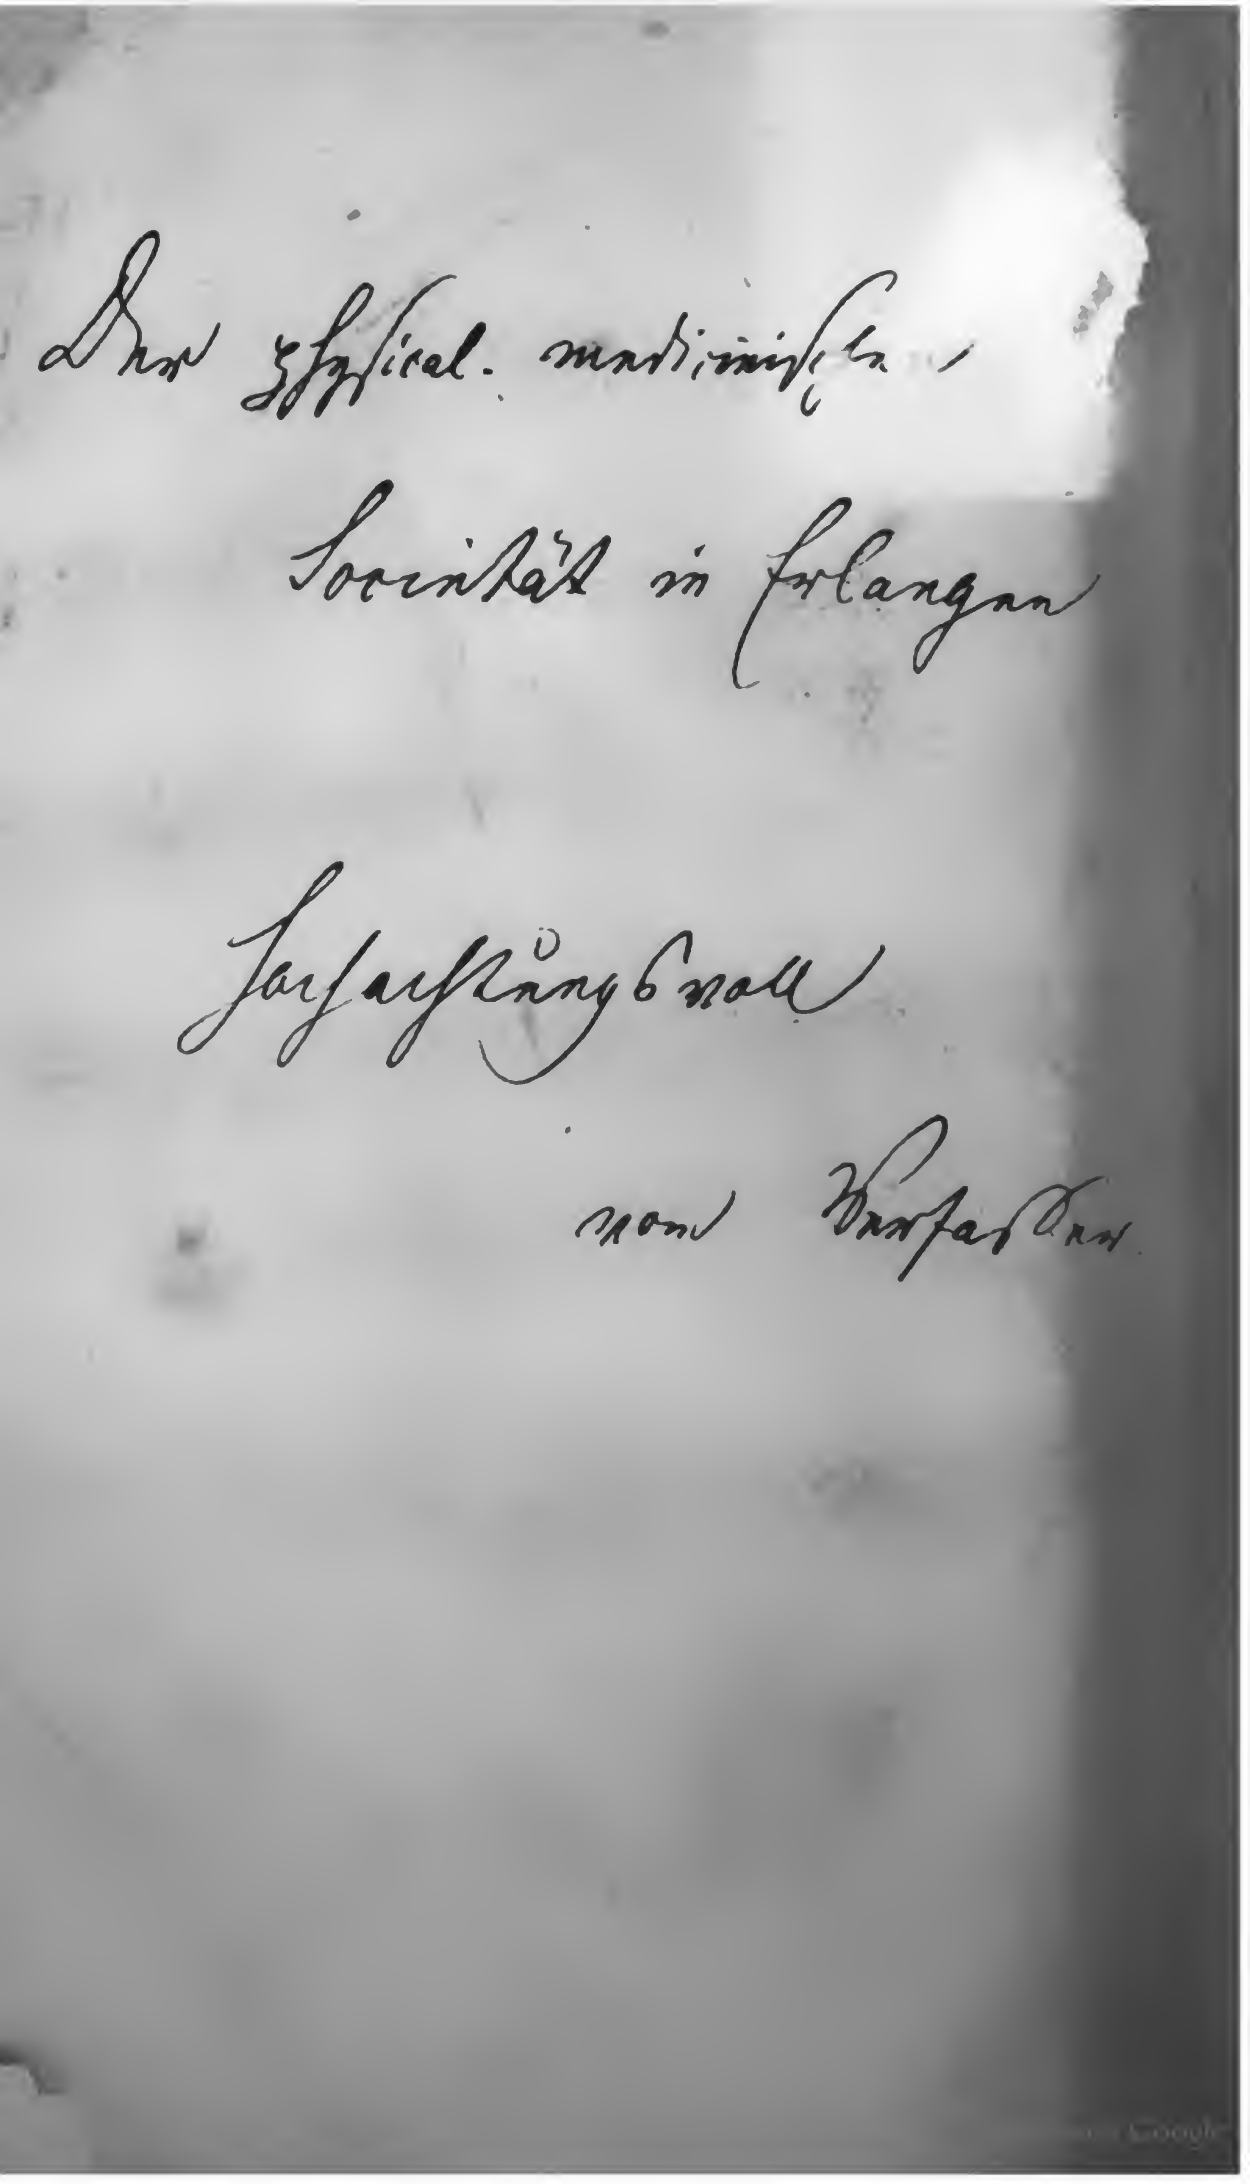 Der physical. medicinischen
Societät in Erlangen
Hochachtungsvoll
vom Verfasser.
Google